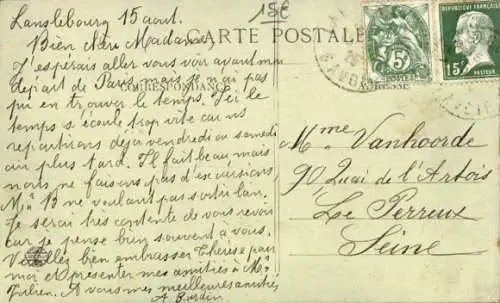 Lanslebourg 15 aout.
15€
Bien chère Madame,
CARTE POSTALE
J'espérais aller vous voir avant mon
départ de Paris mais je n'ai pas
pu en trouver le temps. Ici le
CORRESPONDANCE
temps s'écoule trop vite car nous
repartirons déjà vendredi ou samedi
au plus tard. Il fait beau mais
nous ne faisons pas d'excursions
B ne voulant pas sortir
Je serai très contente de vous revoir
car je pense bien souvent à vous.
Veuillez bien embrasser Thérèse pour
moi et présenter mes amitiés à Mr
Julien. A vous mes meilleures amitiés,
A. Burdin
5c
REPUBLIQUE FRANÇAISE
15c
PASTEUR
ADRESSE
SAVOIE
Mme Vanhoorde
90 Quai de l'Artois
Le Perreux
Seine